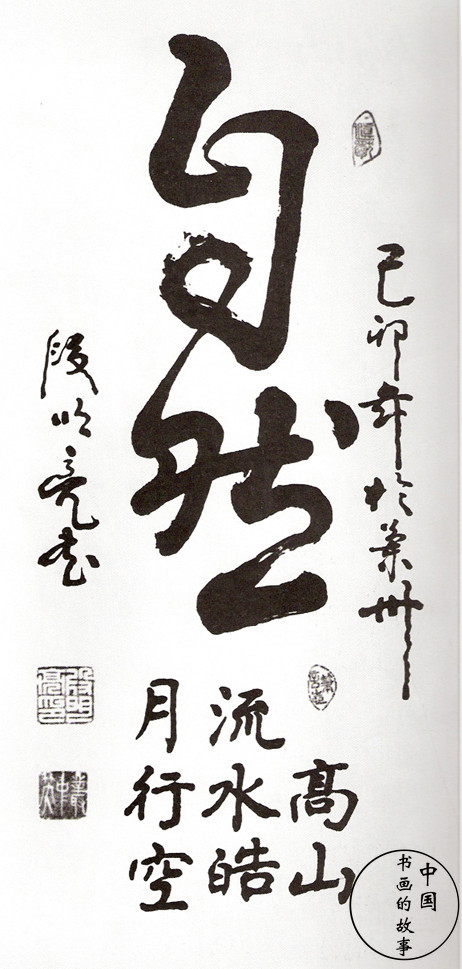 己卯年於州
自然
高山
流水皓
月行空
段明亮書
中国
书画的故事